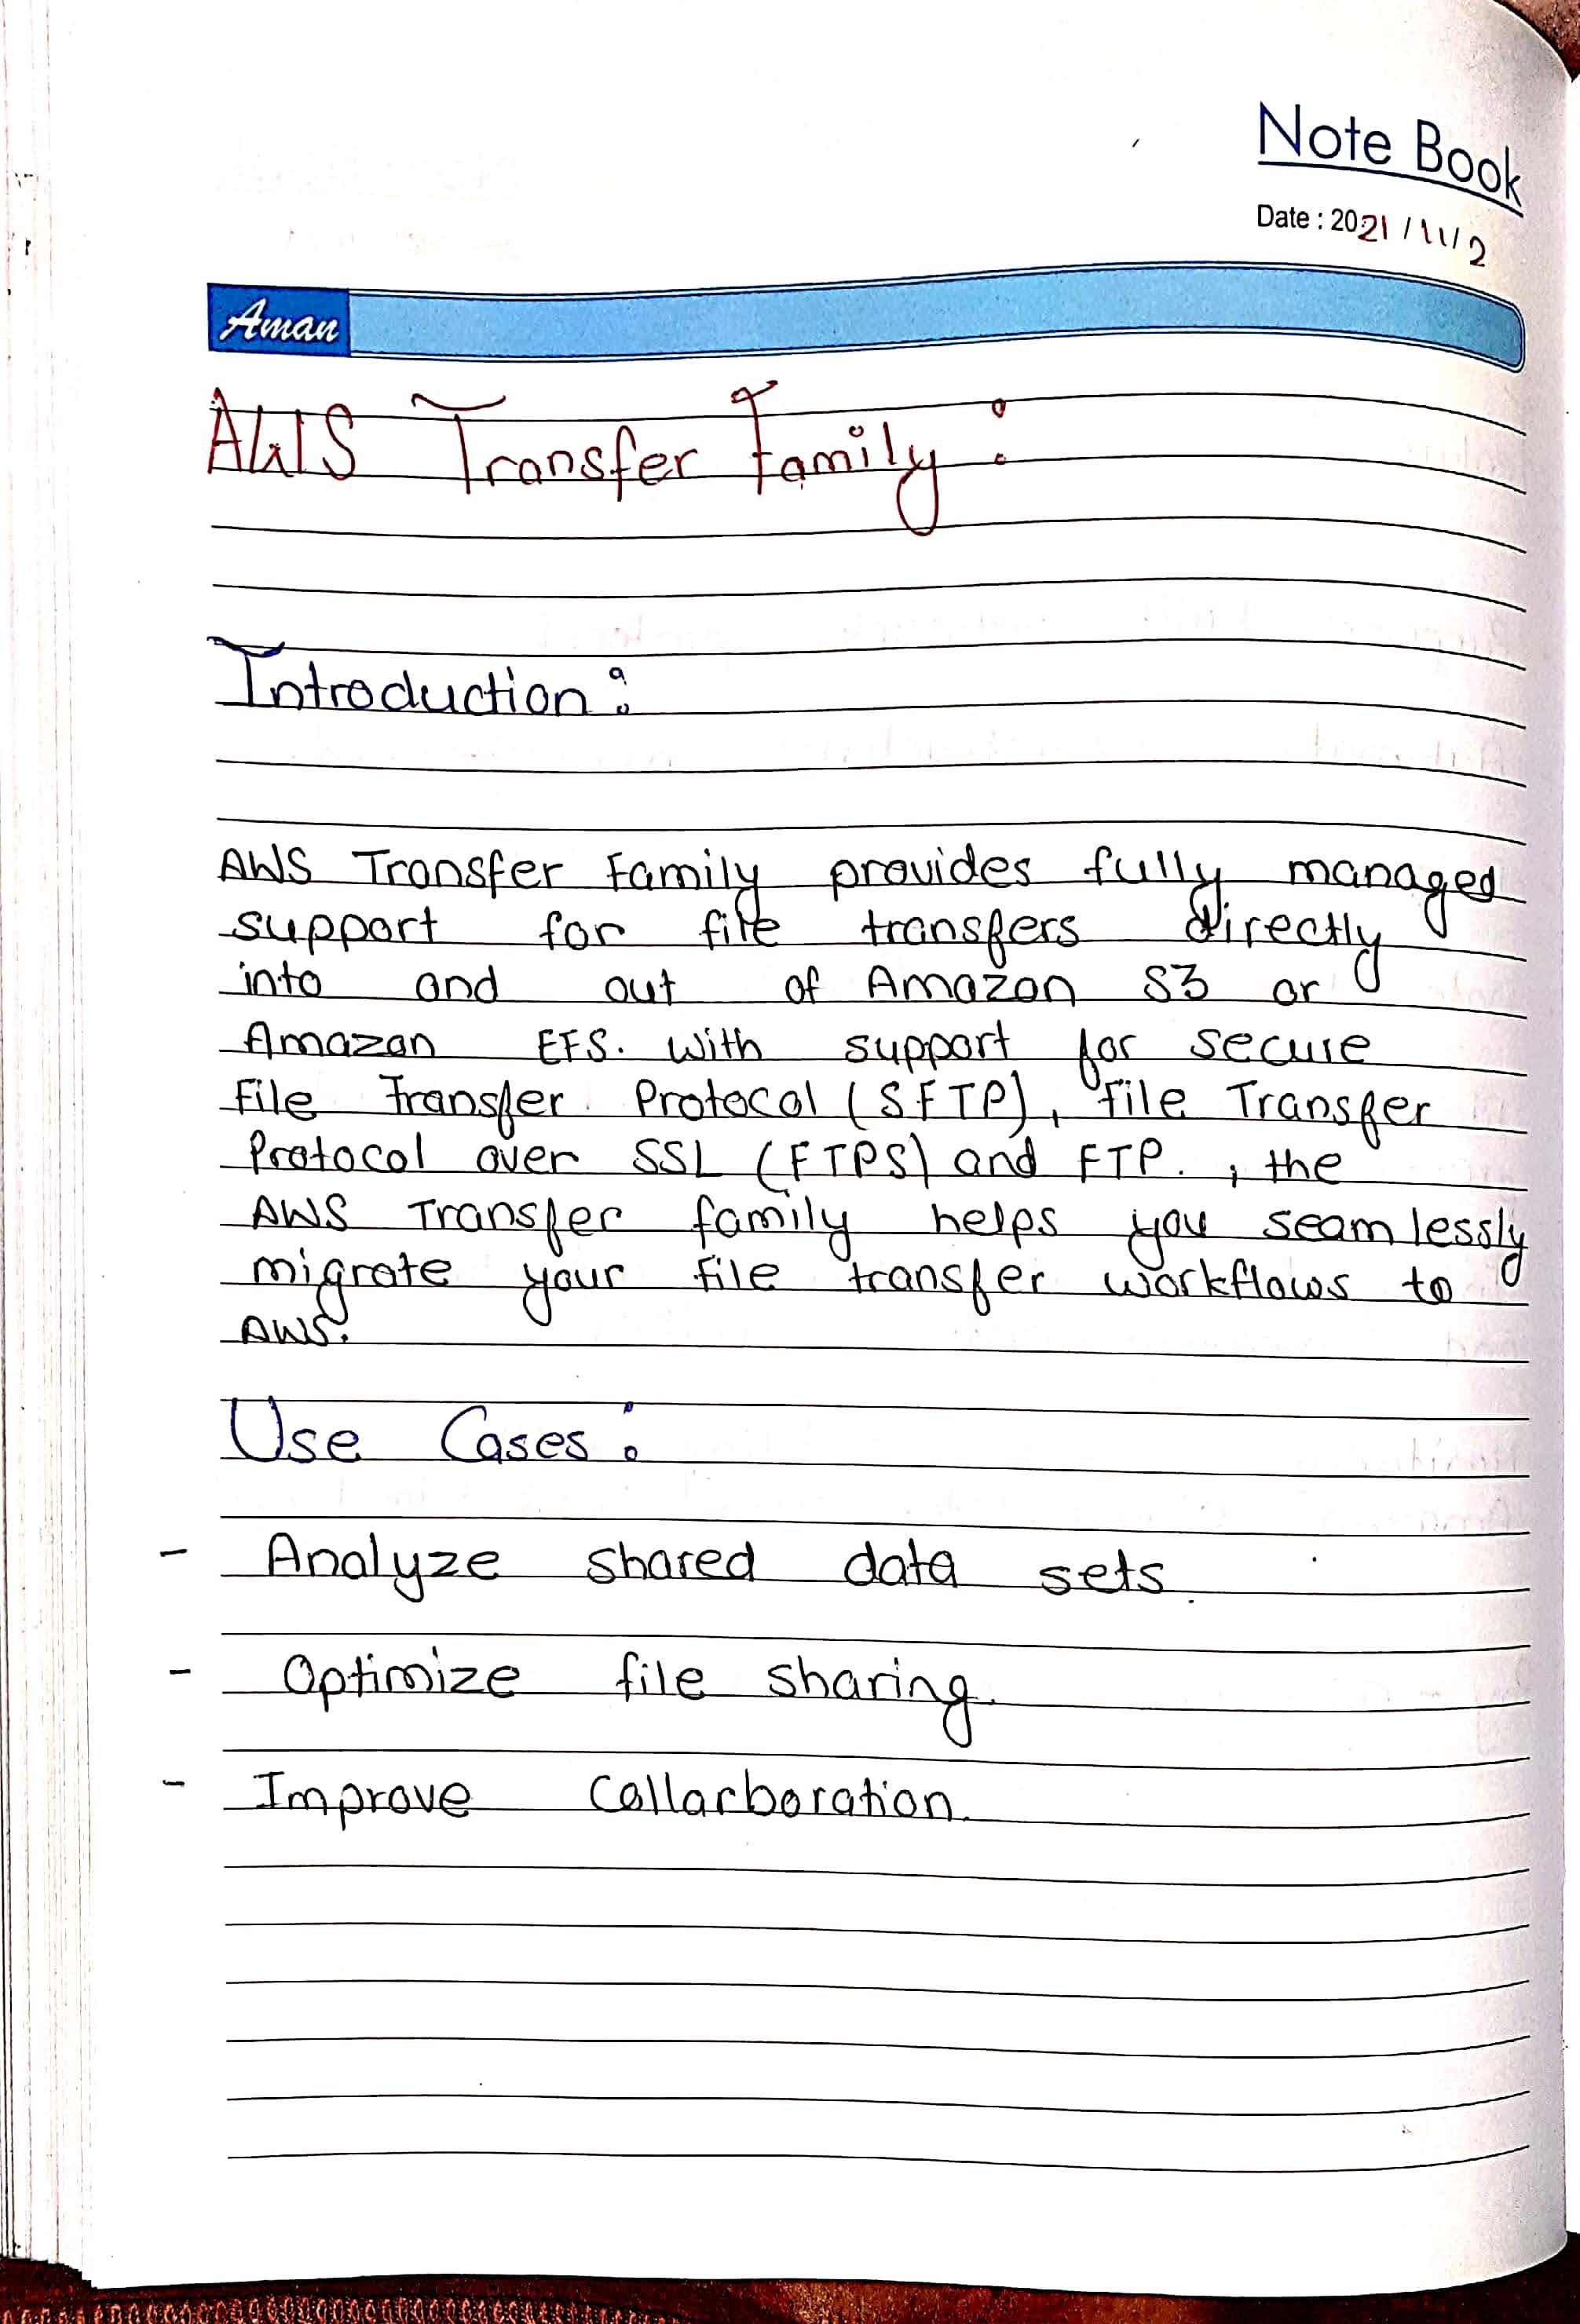 Note Book
Date : 2021 / 11 / 2
Aman
AWS Transfer Family :
Introduction :
AWS Transfer Family provides fully managed
support for file transfers directly
into and out of Amazon S3 or
Amazon EFS. With support for secure
File Transfer Protocol (SFTP), File Transfer
Protocol over SSL (FTPS) and FTP. , the
AWS Transfer family helps you seamlessly
migrate your file transfer workflows to
AWS.
Use Cases :
- Analyze shared data sets.
- Optimize file sharing.
- Improve Collarboration.